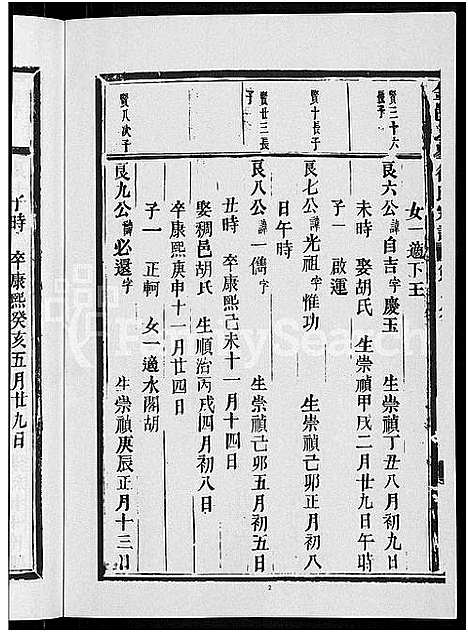 女一適下王
賢三十六長子
良六公諱自吉字慶玉 生崇禎丁丑八月初九日
未時 娶胡氏 生崇禎甲戌二月廿九日午時
子一 啟運
賢十長子
良七公諱光祖字惟功 生崇禎己卯正月初八
日午時
賢廿三長子
良八公諱一儁字 生崇禎己卯五月初五日
丑時 卒康熙己未十一月十四日
娶稠邑胡氏 生順治丙戌四月初八日
卒康熙庚申十一月廿四日
子一 正軻 女一適水閣胡
賢八次子
良九公諱必還字 生崇禎庚辰正月十三日
子時 卒康熙癸亥五月廿九日
FamilySearch
2